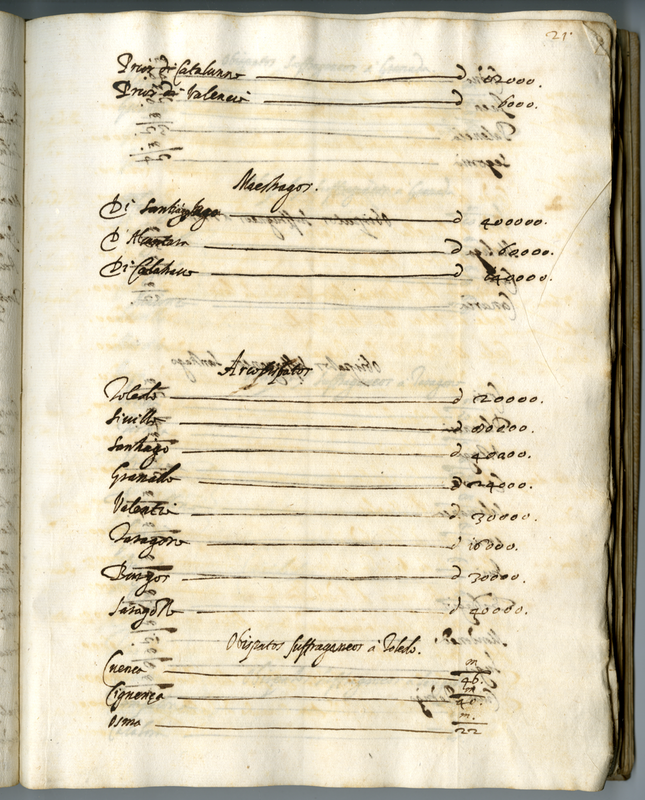 21.
Prior di Catalunna d 12000.
Prior di Valencia d 6000.
Maestragos.
Di Santiago d 400000.
D Alcantara d 60000.
Di Calatraua d
Arcobispatos
Toledo d 120000.
Siuillo d 80000.
Santiago d 40000.
Granado d 24000.
Valentia d 30000.
Taragona d 16000.
Burgos d 30000.
Saragoza d 40000.
Obispatos suffraganeos à Toledo.
Cuenca m 46.
Ciguença m 40.
Osma m. 22